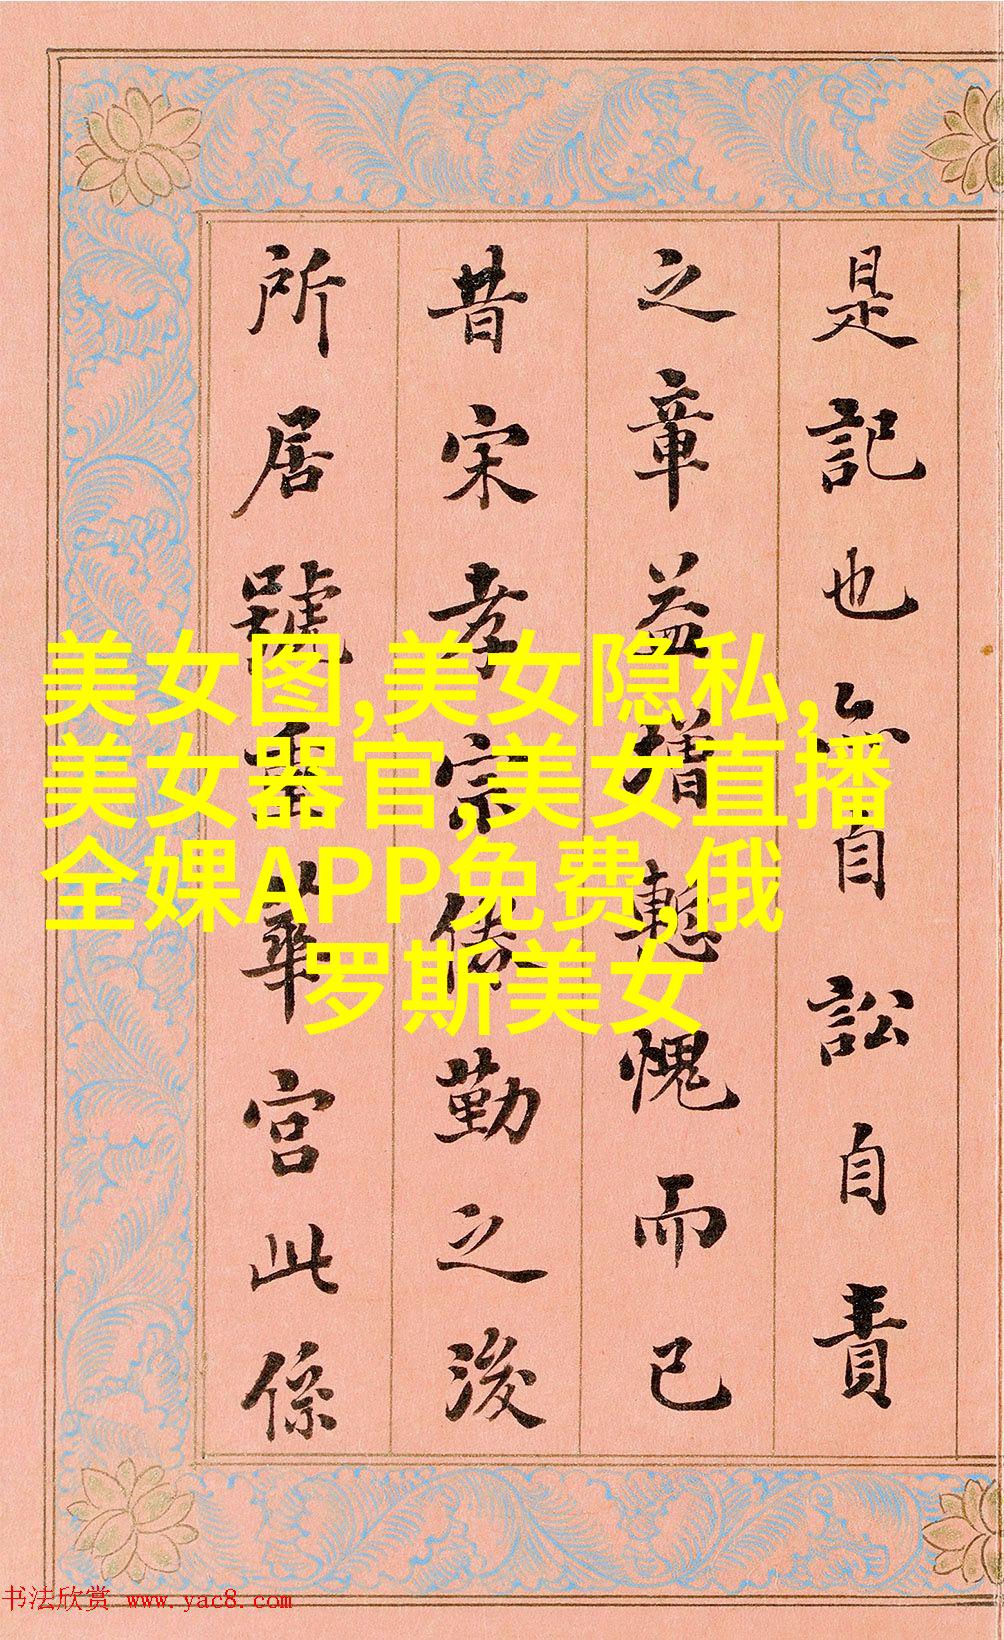 是記也自訟自責
之章益增慙愧而已
昔宋孝宗倦勤之後
所居號重華宮此係
美女图,美女隐私,
美女器官,美女直播
全婐APP免费,俄
罗斯美女
书法欣赏 www.yac8.com